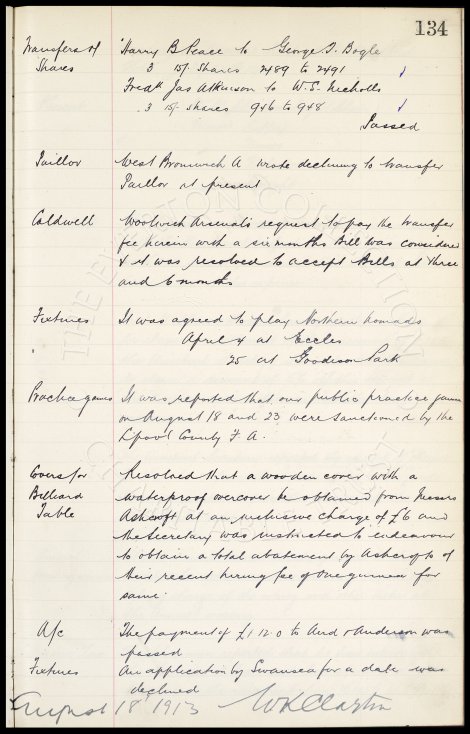 134
Transfers of Harry B Peace to George T. Bogle
Shares 3 15/- shares 2489 to 2491
Fredk Jas Atkinson to W. S. Nicholls
3 15/- shares 946 to 948
Passed
Taillor West Bromwich A wrote declining to transfer
Taillor at present
Caldwell Woolwich Arsenal's request to pay the transfer
fee herein with a six months Bill was considered
& it was resolved to accept Bills at three
and 6 months
Fixtures It was agreed to play Northern Nomads
April 4 at Eccles
25 at Goodison Park
Practice games It was reported that our public practice games
on August 18 and 23 were sanctioned by the
L'pool County F.A.
Covers for Resolved that a wooden cover with a
Billiard waterproof overcover be obtained from Messrs
Table Ashcroft at an inclusive charge of £6 and
the Secretary was instructed to endeavour
to obtain a total abatement by Ashcrofts of
their recent hiring fee of One guinea for
same.
A/c The payment of £1.12.0 to And & Anderson was
passed
Fixtures An application by Swansea for a date was
declined
August 18 1913 W R Clayton
THE EVERTON COLLECTION